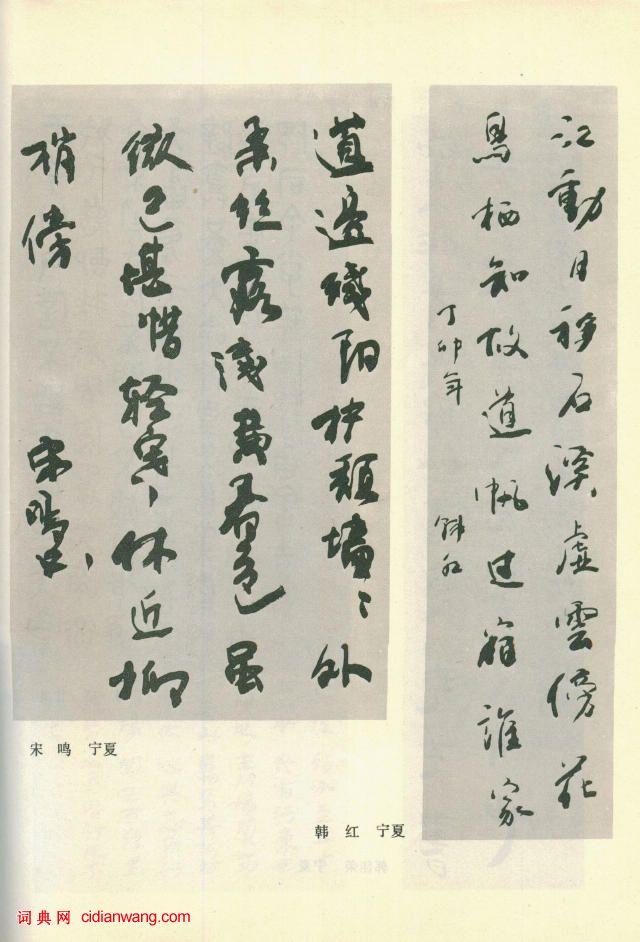 江動月移石溪虚雲傍花
鳥栖知故道帆过宿誰家
丁卯年 韩红
道邊残阳护颓墙〻外
柔丝露浅黄春色虽
微已堪惜轻寒休近柳
梢傍 宋鸣书
宋 鸣 宁夏
韩 红 宁夏
词典网 cidianwang.com